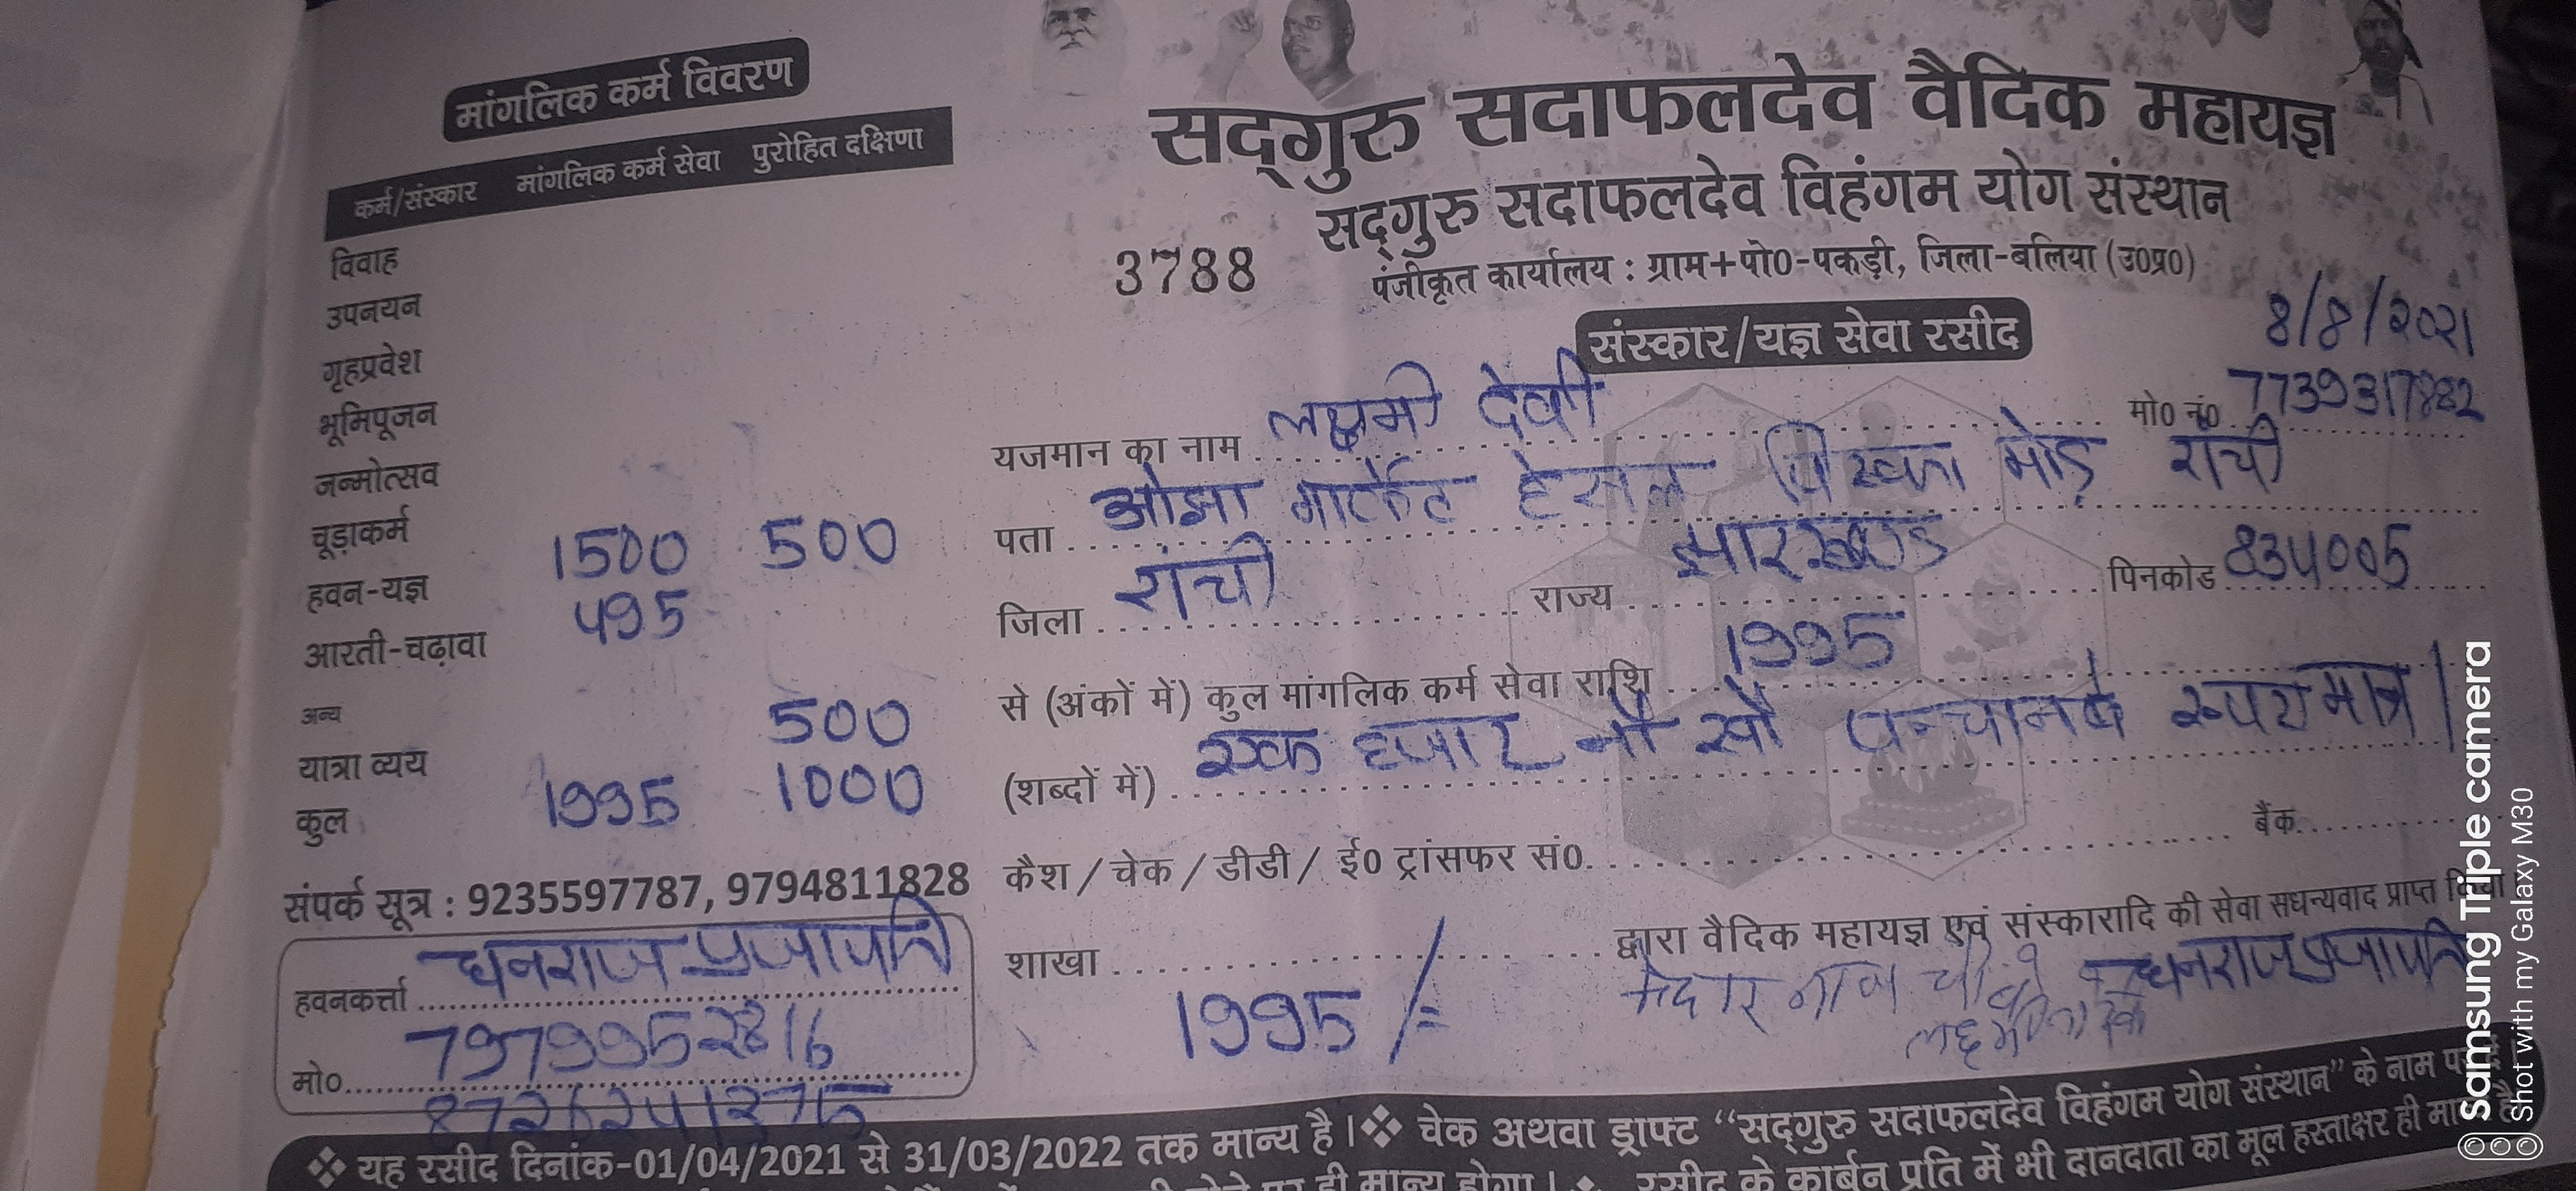 मांगलिक कर्म विवरण
कर्म/संस्कार मांगलिक कर्म सेवा पुरोहित दक्षिणा
विवाह
उपनयन
गृहप्रवेश
भूमिपूजन
जन्मोत्सव
चूड़ाकर्म
हवन-यज्ञ 1500 500
आरती-चढ़ावा 495
अन्य
यात्रा व्यय 500
कुल 1995 1000
संपर्क सूत्र : 9235597787, 9794811828
हवनकर्त्ता धनराज प्रजापति
मो०
सद्गुरु सदाफलदेव वैदिक महायज्ञ
सद्गुरु सदाफलदेव विहंगम योग संस्थान
3788 पंजीकृत कार्यालय : ग्राम+पो०-पकड़ी, जिला-बलिया (उ०प्र०)
संस्कार/यज्ञ सेवा रसीद 8/8/२०२1
यजमान का नाम लक्ष्मी देवी मो० नं० 7739317882
पता ओझा मार्केट हेसल पिस्का मोड़ राँची
जिला रांची राज्य झारखण्ड पिनकोड 834005
से (अंकों में) कुल मांगलिक कर्म सेवा राशि 1995
(शब्दों में) एक हजार नौ सौ पन्चानबे रुपए मात्र।
कैश / चेक / डीडी / ई० ट्रांसफर सं०. बैंक
शाखा द्वारा वैदिक महायज्ञ एवं संस्कारादि की सेवा सधन्यवाद प्राप्त
1995/= धनराज प्रजापति
❖ यह रसीद दिनांक-01/04/2021 से 31/03/2022 तक मान्य है।❖ चेक अथवा ड्राफ्ट “सद्गुरु सदाफलदेव विहंगम योग संस्थान” के नाम
ही मान्य होगा। ❖ रसीद के कार्बन प्रति में भी दानदाता का मूल हस्ताक्षर ही
Samsung Triple camera
Shot with my Galaxy M30